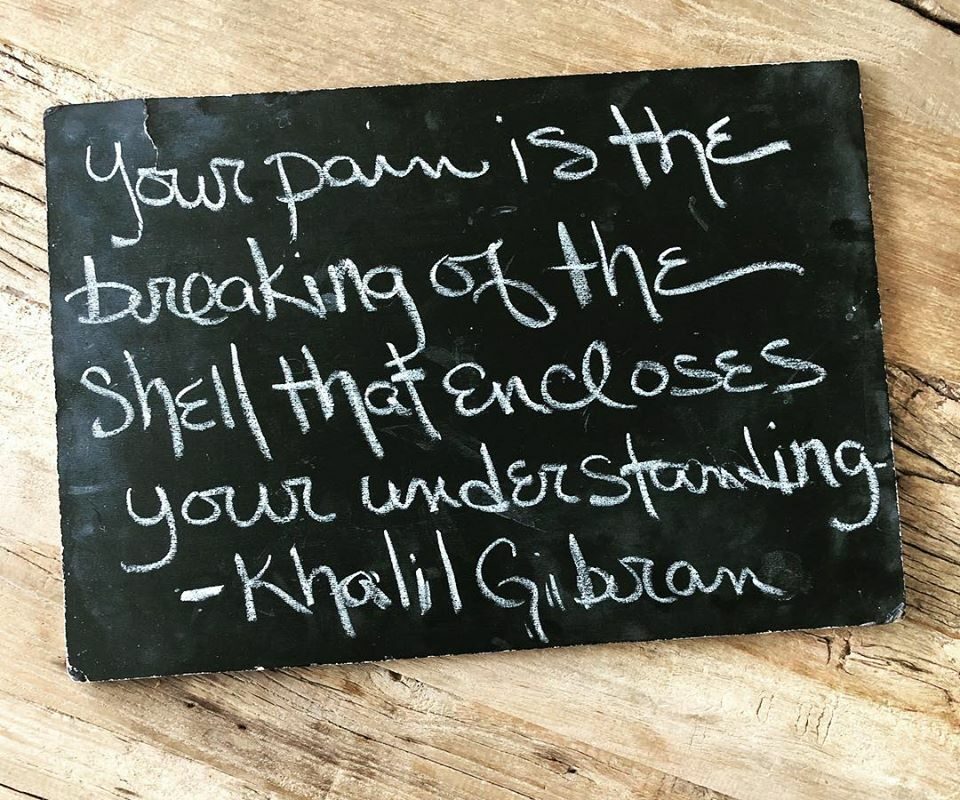 Your pain is the
breaking of the
Shell that encloses
your understanding.
- Khalil Gibran